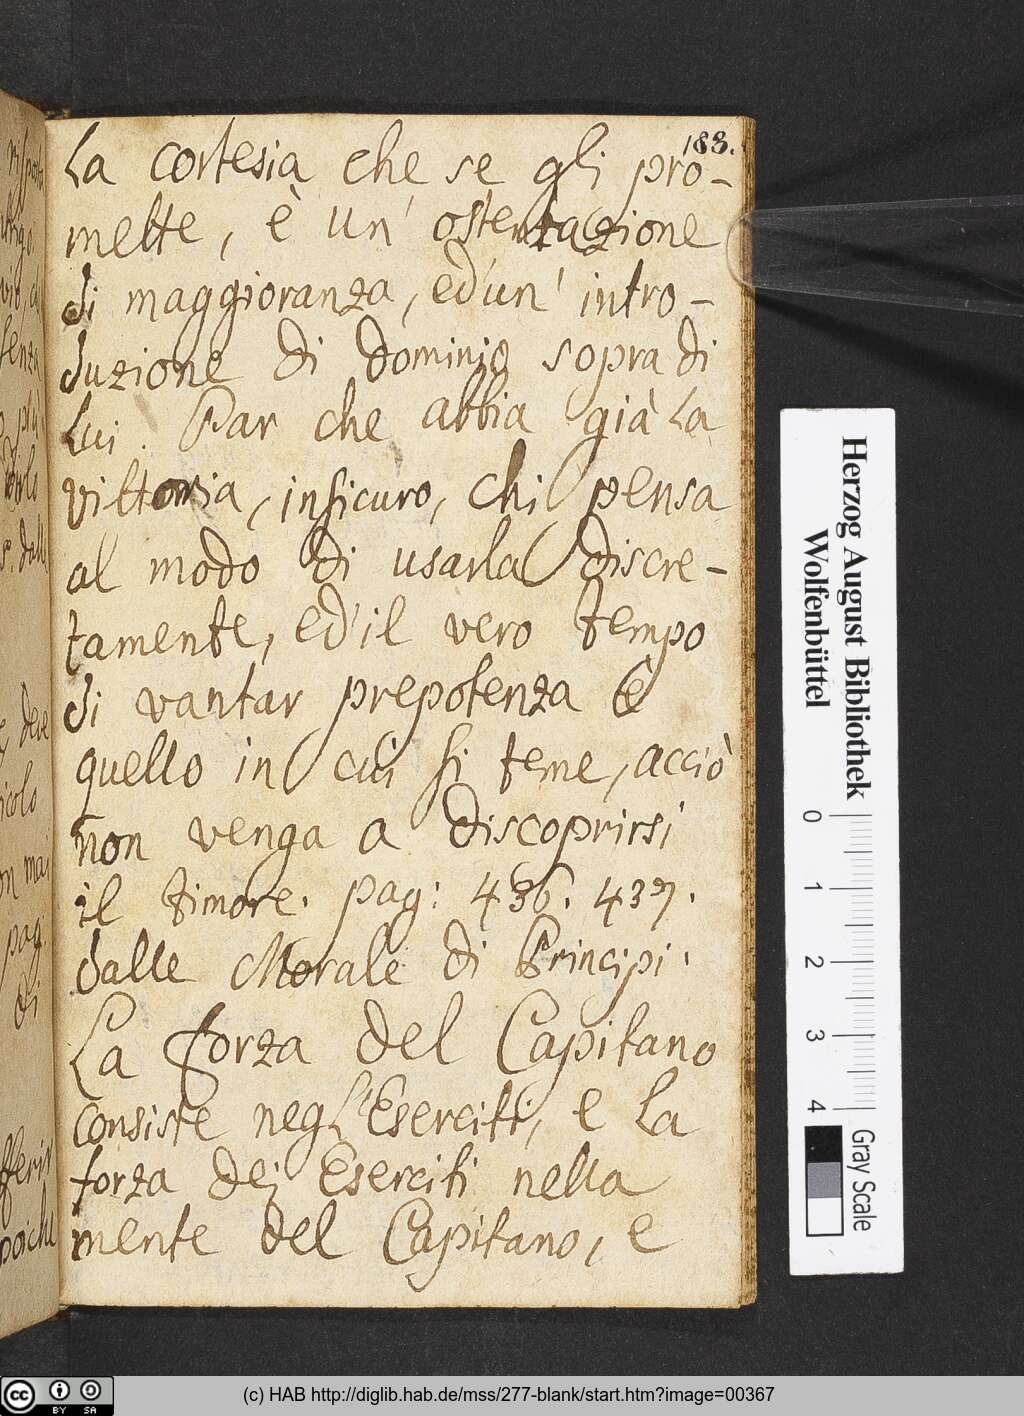 183.
La cortesia che se gli pro-
mette, è un' ostentazione
di maggioranza, ed'un' intro-
duzione di dominio sopra di
Lui. Par che abbia già La
vittoria, insicuro, chi pensa
al modo di usarla discre-
tamente, ed'il vero tempo
di vantar prepotenza è
quello in cui si teme, acciò
non venga a discoprirsi
il timore. pag: 436. 437.
dalle Morale di Principi.
La forza del Capitano
consiste negl'Eserciti, e La
forza dei Eserciti nella
mente del Capitano, e
Herzog August Bibliothek
Wolfenbüttel
0 1 2 3 4
Gray Scale
cc BY SA
(c) HAB http://diglib.hab.de/mss/277-blank/start.htm?image=00367